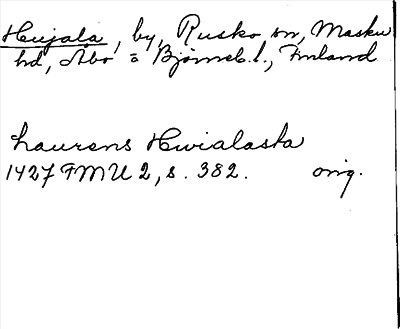 Hujala, by, Rusko sn, Masku
hd, Åbo o Björneb. l., Finland
Laurens Hwialasta
1427 FMU 2, s. 382. orig.